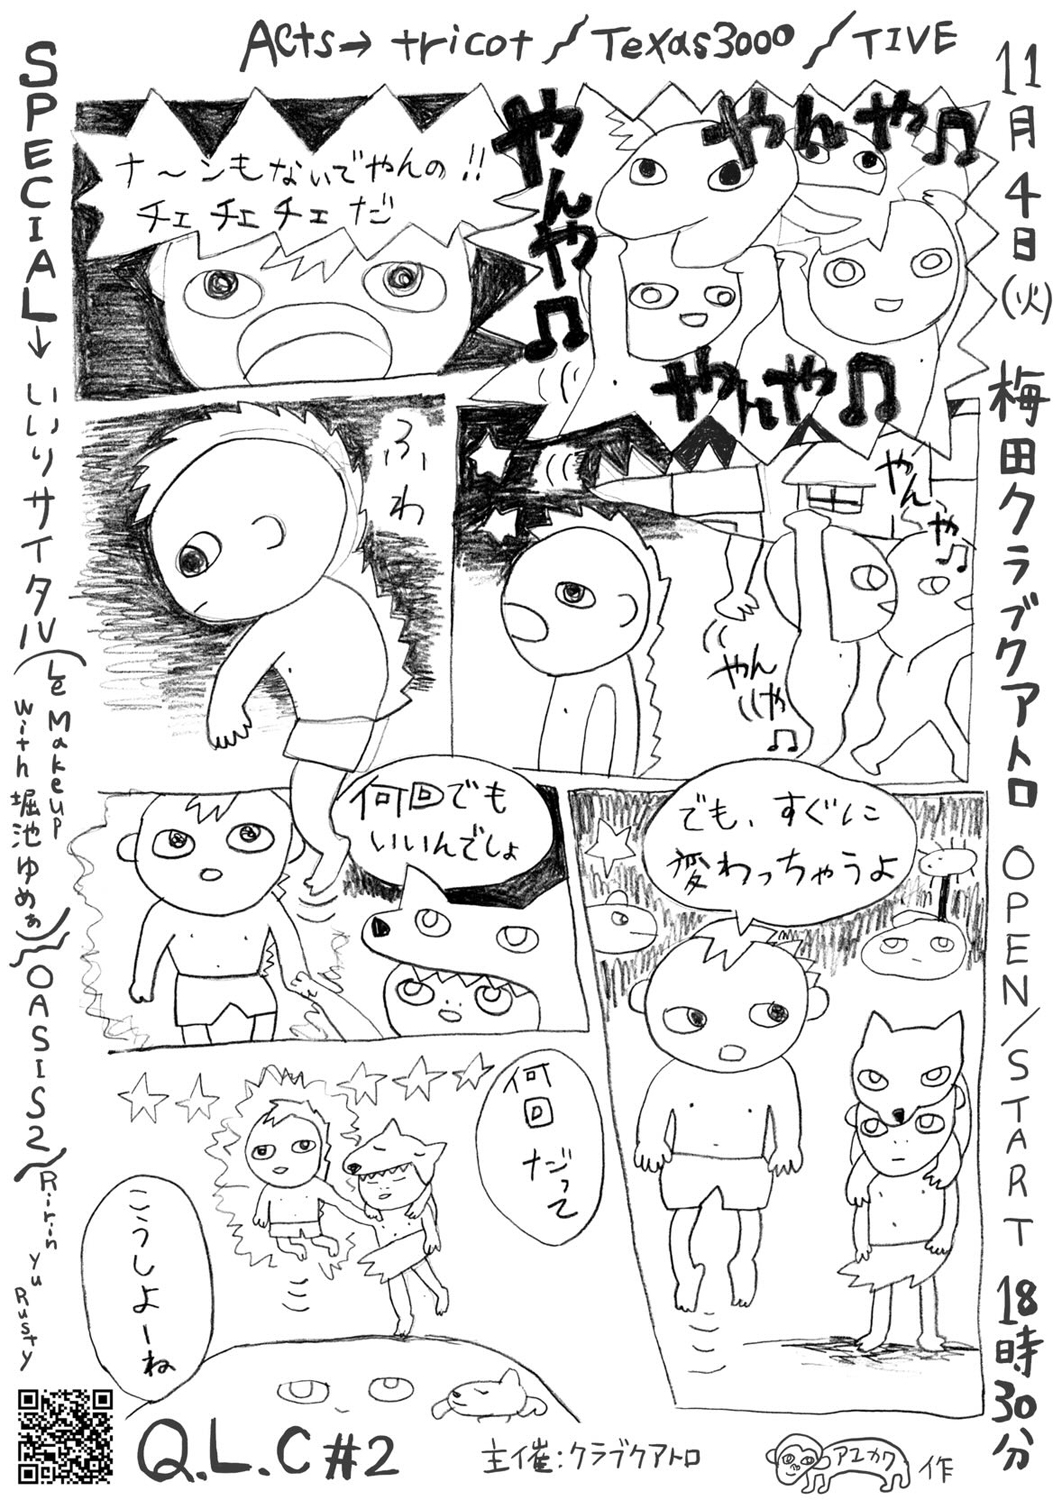 Acts→ tricot / Texas3000 / TIVE
11月4日(火) 梅田クラブクアトロ OPEN/START 18時30分
SPECIAL→いりリサイタル(Le Makeup with 堀池ゆめぁ) / OASIS2 (Ririn Yu Rusty
やんや♫
やんや♫
やんや♫
ナ〜ンもないでやんの!!
チェ チェ チェ だ
やんや♫
やんや♫
ふわ
でも、すぐに
変わっちゃうよ
何回でも
いいんでしょ
何回だって
こうしよーね
Q.L.C #2
主催:クラブクアトロ
アユカワ
作